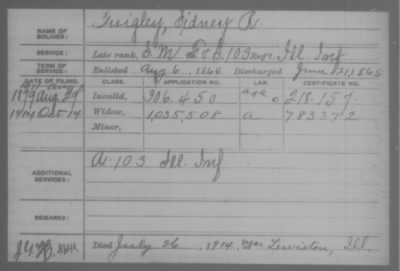 NAME OF SOLDIER: Quigley, Sidney R.
SERVICE: Late rank, Co B, 103 Reg't Ill. Inf
TERM OF SERVICE: Enlisted Aug 6, 1864 Discharged June 21, 1865
DATE OF FILING. APPLICATION NUMBER. LAW. CERTIFICATE NUMBER.
1879 Aug 29 Invalid, 306.450 age c 218.157
1914 Oct 14 Widow, 1,035,508 a 783372
Minor,
ADDITIONAL SERVICES: A. 103 Ill. Inf
REMARKS:
Died July 26, 1914, near Lewiston, Ill.